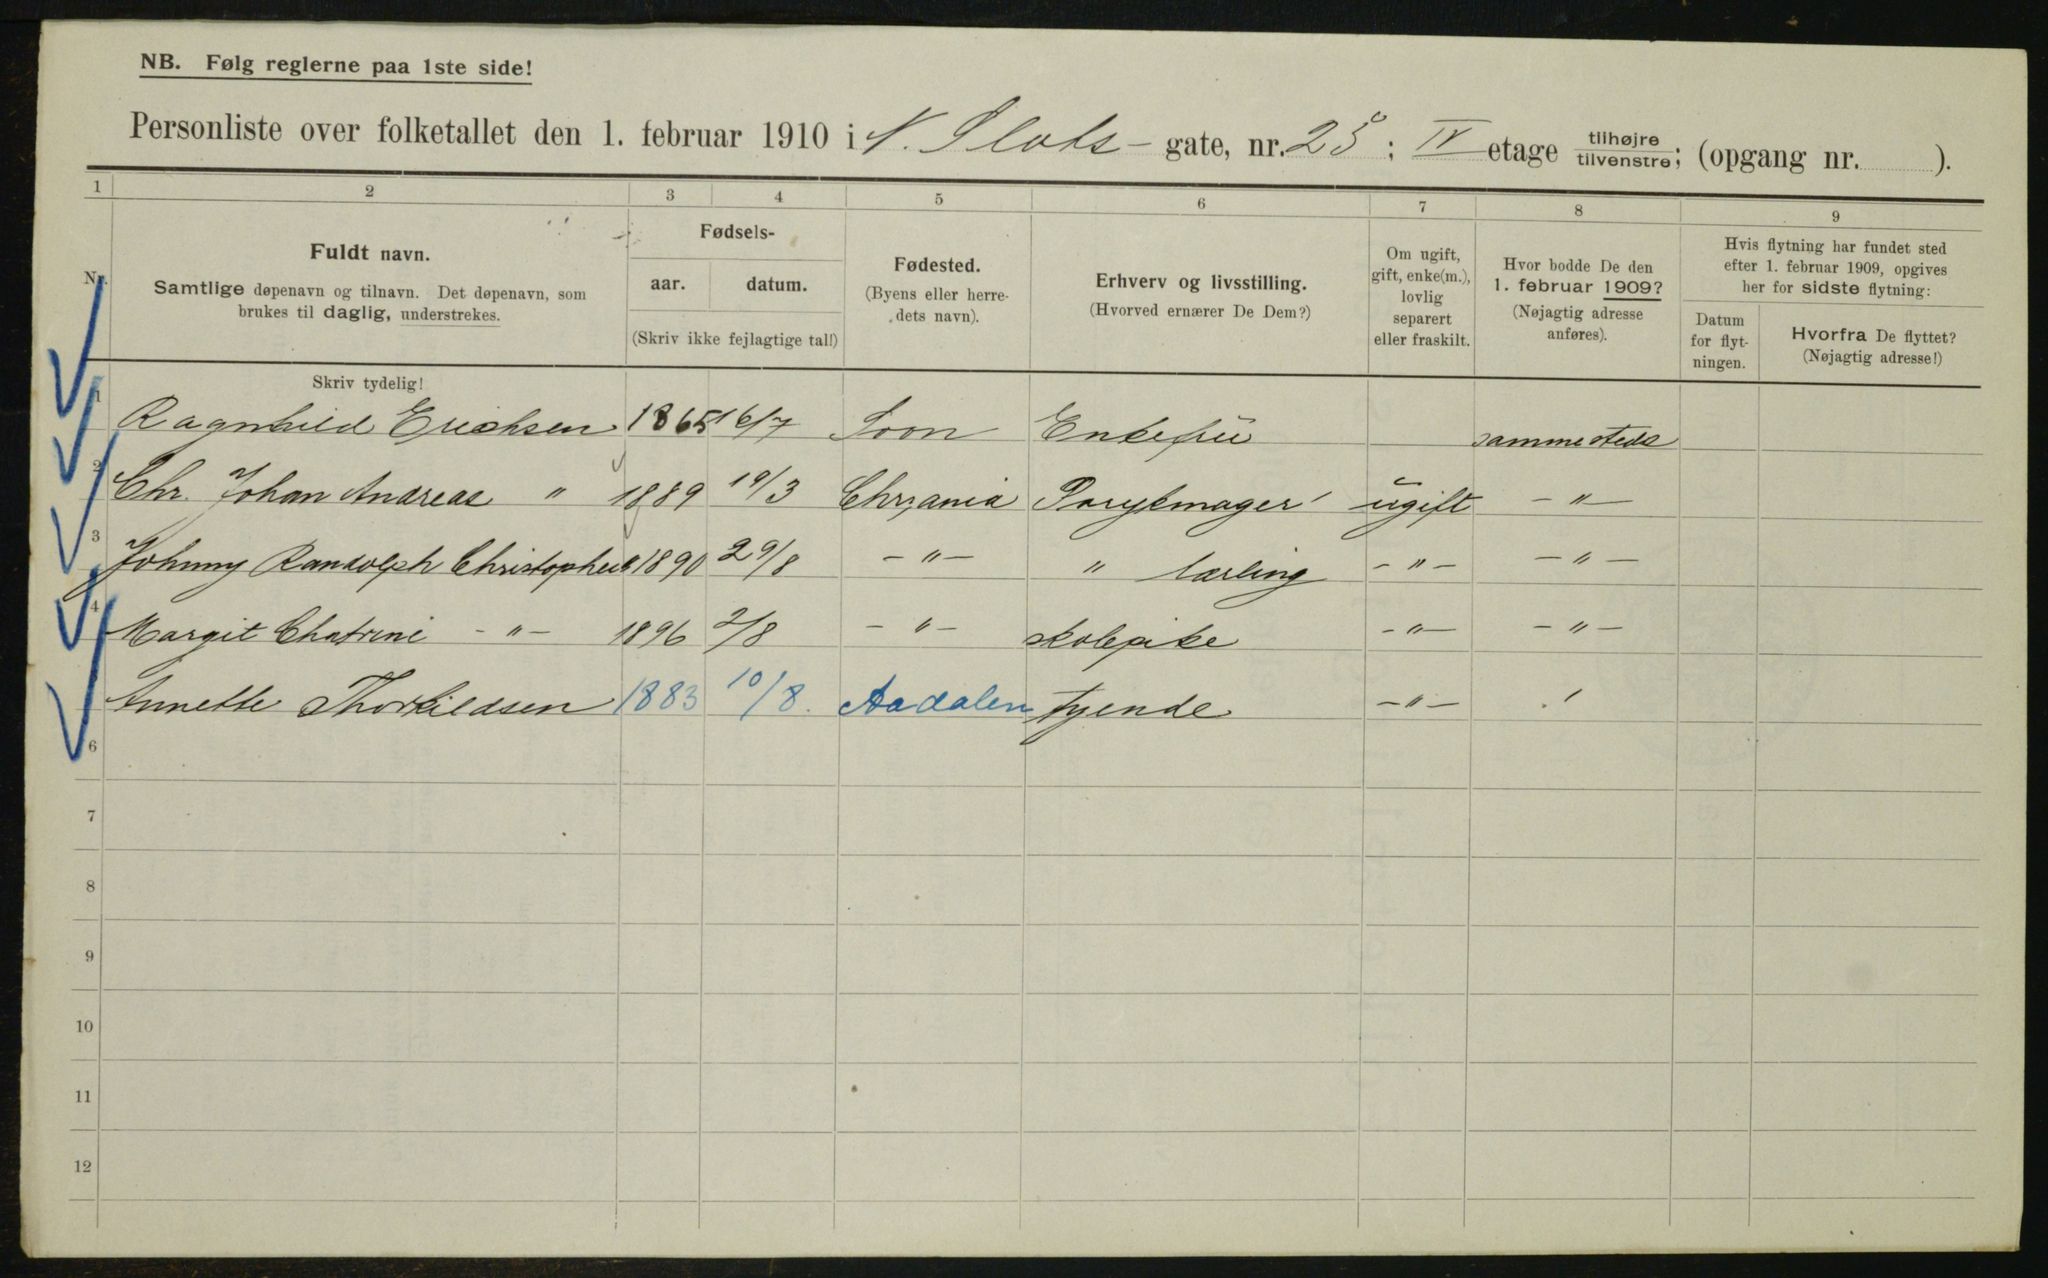 NB. Følg reglerne paa 1ste side!
Personliste over folketallet den 1. februar 1910 i N. Slots- gate, nr. 25; IV etage tilhøjre/tilvenstre; (opgang nr. ).
1 2 3 4 5 6 7 8 9
Nr.
Fuldt navn.
Samtlige døpenavn og tilnavn. Det døpenavn, som
brukes til daglig, understrekes.
Fødsels-
aar. datum.
(Skriv ikke fejlagtige tal!)
Fødested.
(Byens eller herre-
dets navn).
Erhverv og livsstilling.
(Hvorved ernærer De Dem?)
Om ugift,
gift, enke(m.),
lovlig
separert
eller fraskilt.
Hvor bodde De den
1. februar 1909?
(Nøjagtig adresse
anføres).
Hvis flytning har fundet sted
efter 1. februar 1909, opgives
her for sidste flytning:
Datum
for flyt-
ningen.
Hvorfra De flyttet?
(Nøjagtig adresse!)
Skriv tydelig!
1 Ragnhild Erichsen 1865 16/7 Soon Enkefru sammesteds
2 Chr. Johan Andreas " 1889 19/3 Chr,ania ugift - " -
3 Johnny Randolph Christopher " 1890 29/8 - " - " lærling - " - - " -
4 Margit Chatrine - " - 1896 2/8 - " - skolepike - " - - " -
Annette Thorkildsen 1883 10/8. Aadalen tyende - " -
6
7
8
9
10
11
12